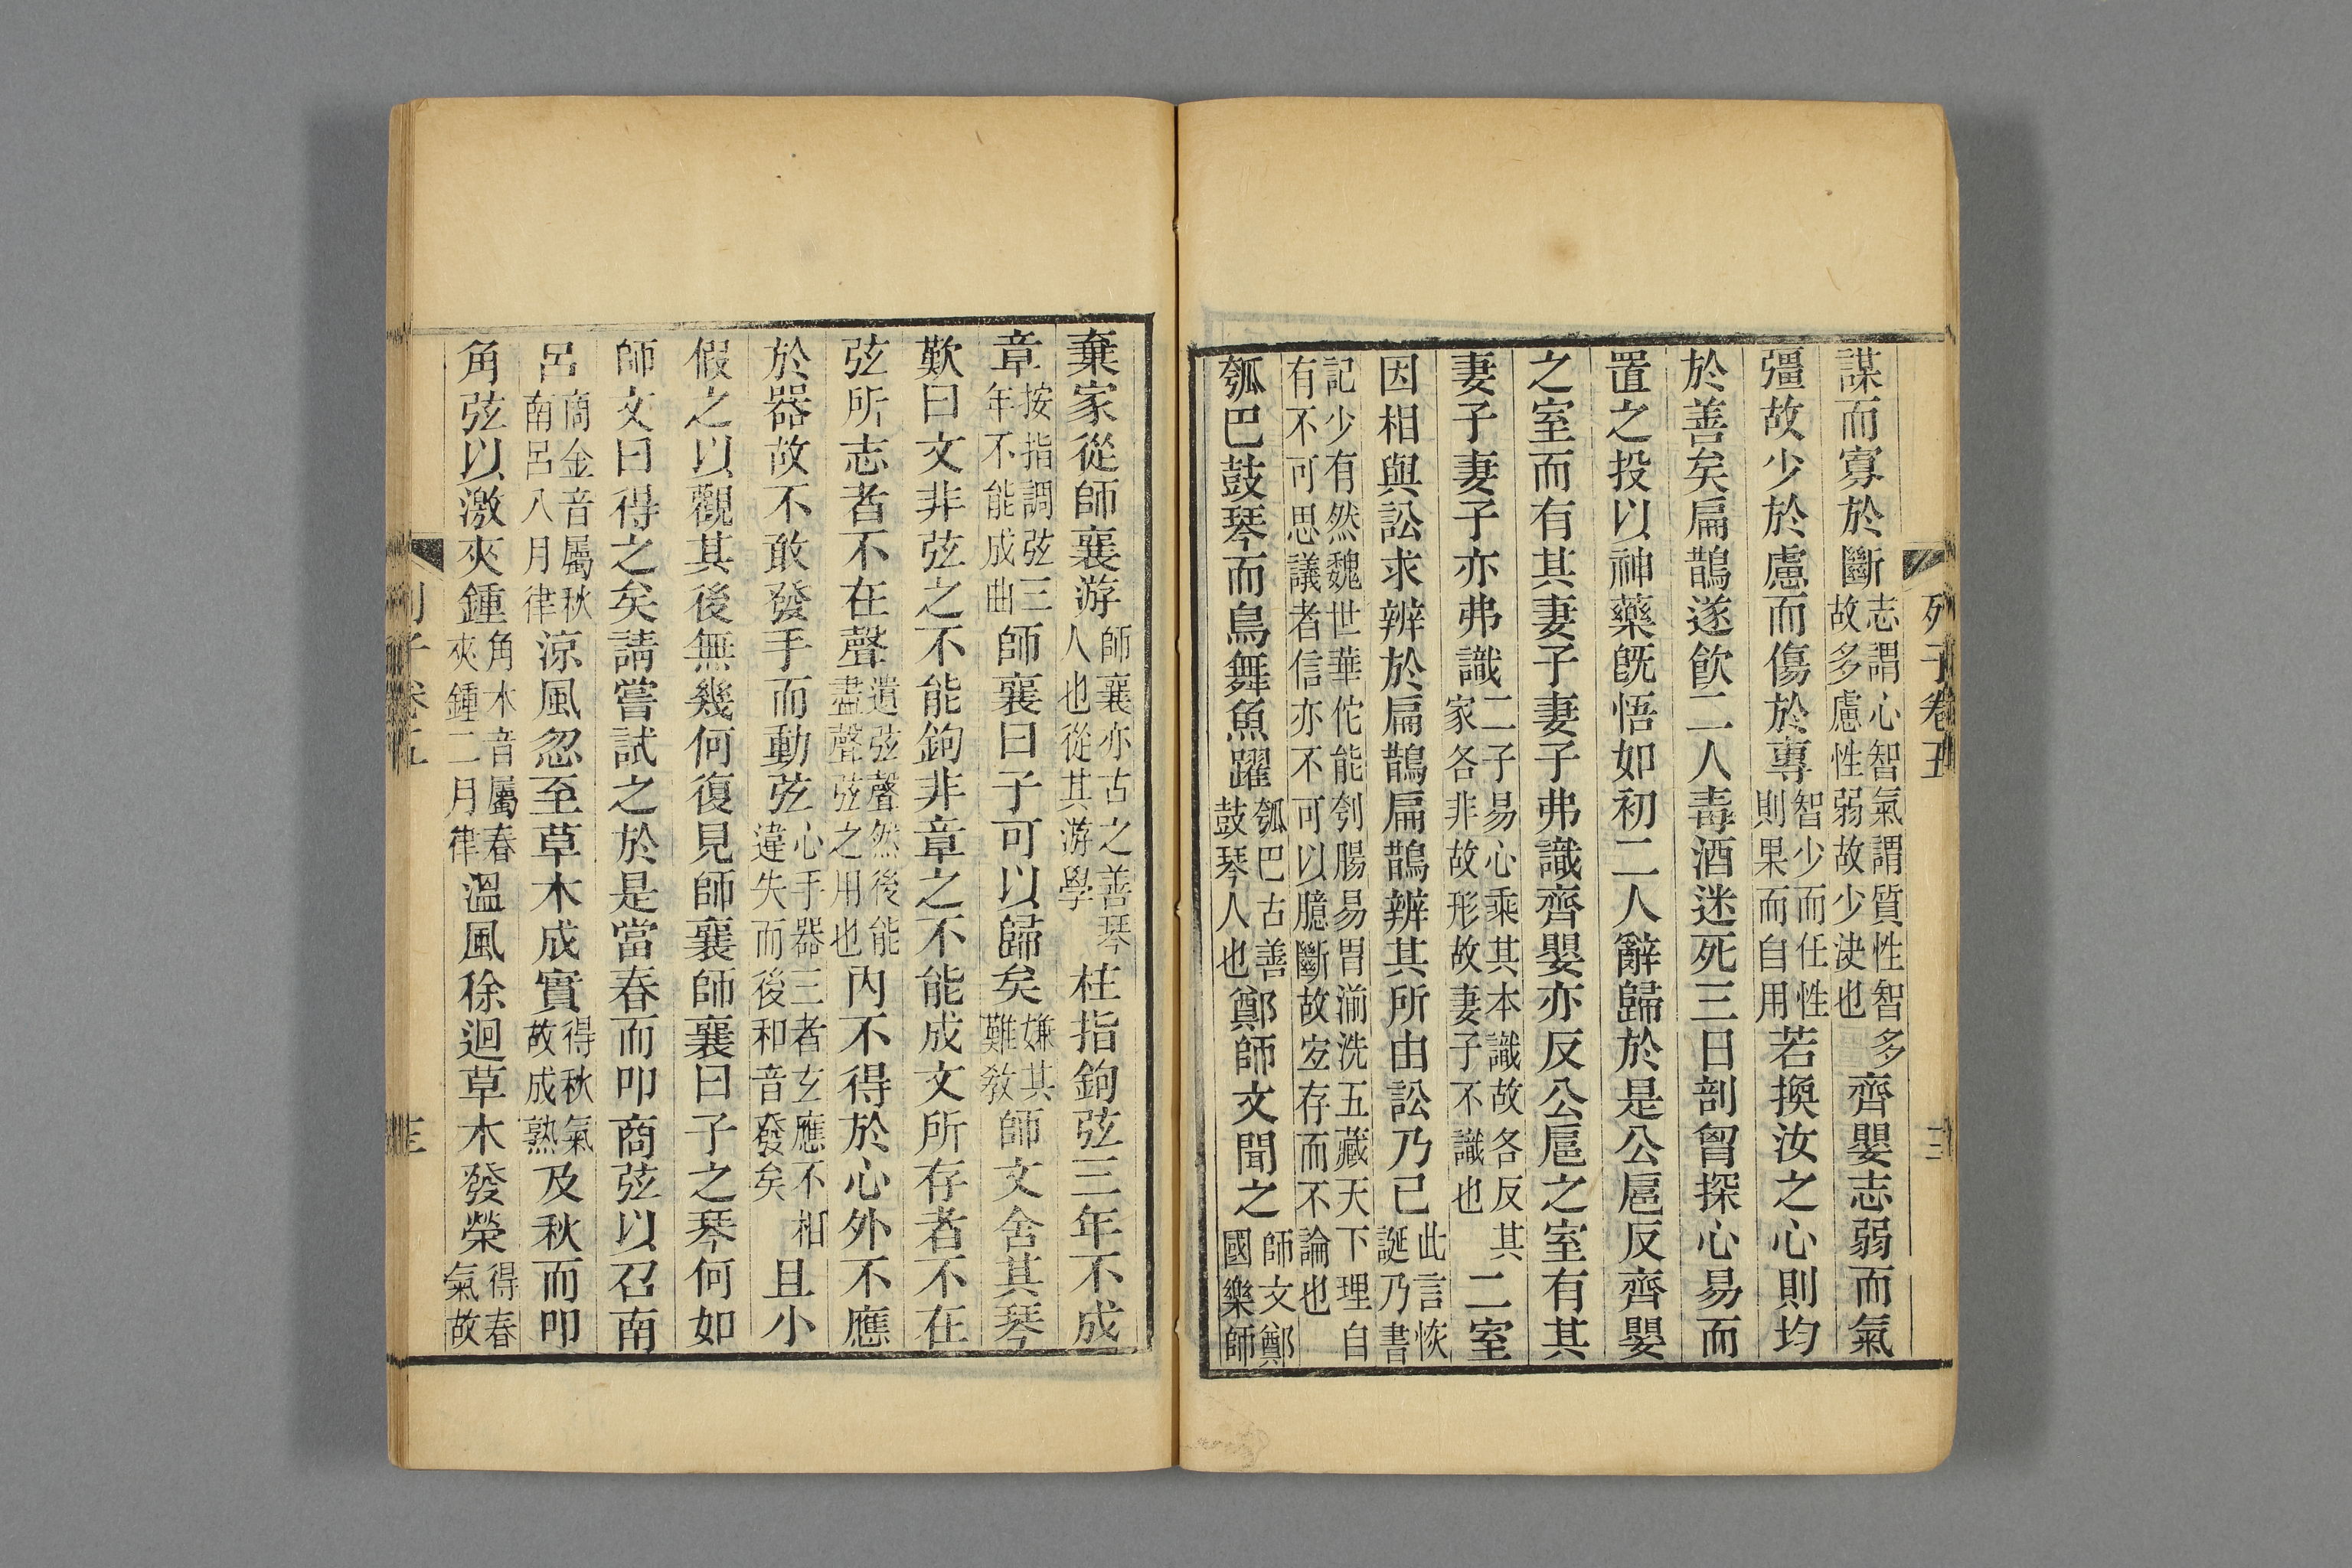 列子卷五
謀而寡於斷志謂心智氣謂質性智多故多慮性弱故少決也齊嬰志弱而氣
彊故少於慮而傷於專智少而任性則果而自用若換汝之心則均
於善矣扁鵲遂飲二人毒酒迷死三日剖胷探心易而
置之投以神藥旣悟如初二人辭歸於是公扈反齊嬰
之室而有其妻子妻子弗識齊嬰亦反公扈之室有其
妻子妻子亦弗識二子易心乘其本識故各反其家各非故形故妻子不識也二室
因相與訟求辨於扁鵲扁鵲辨其所由訟乃已此言恢誕乃書
記少有然魏世華佗能刳腸易胃湔洗五藏天下理自有不可思議者信亦不可以臆斷故宜存而不論也
瓠巴鼓琴而鳥舞魚躍瓠巴古善鼓琴人也鄭師文聞之師文鄭國樂師
棄家從師襄游師襄亦古之善琴人也從其游學柱指鉤弦三年不成
章按指調弦三年不能成曲師襄曰子可以歸矣嫌其難教師文舍其琴
歎曰文非弦之不能鉤非章之不能成文所存者不在
弦所志者不在聲遺弦聲然後能盡聲弦之用也內不得於心外不應
於器故不敢發手而動弦心手器三者玄應不相違失而後和音發矣且小
假之以觀其後無幾何復見師襄師襄曰子之琴何如
師文曰得之矣請嘗試之於是當春而叩商弦以召南
呂商金音屬秋南呂八月律涼風忽至草木成實得秋氣故成熟及秋而叩
角弦以激夾鍾角木音屬春夾鍾二月律溫風徐迴草木發榮得春氣故
列子卷五